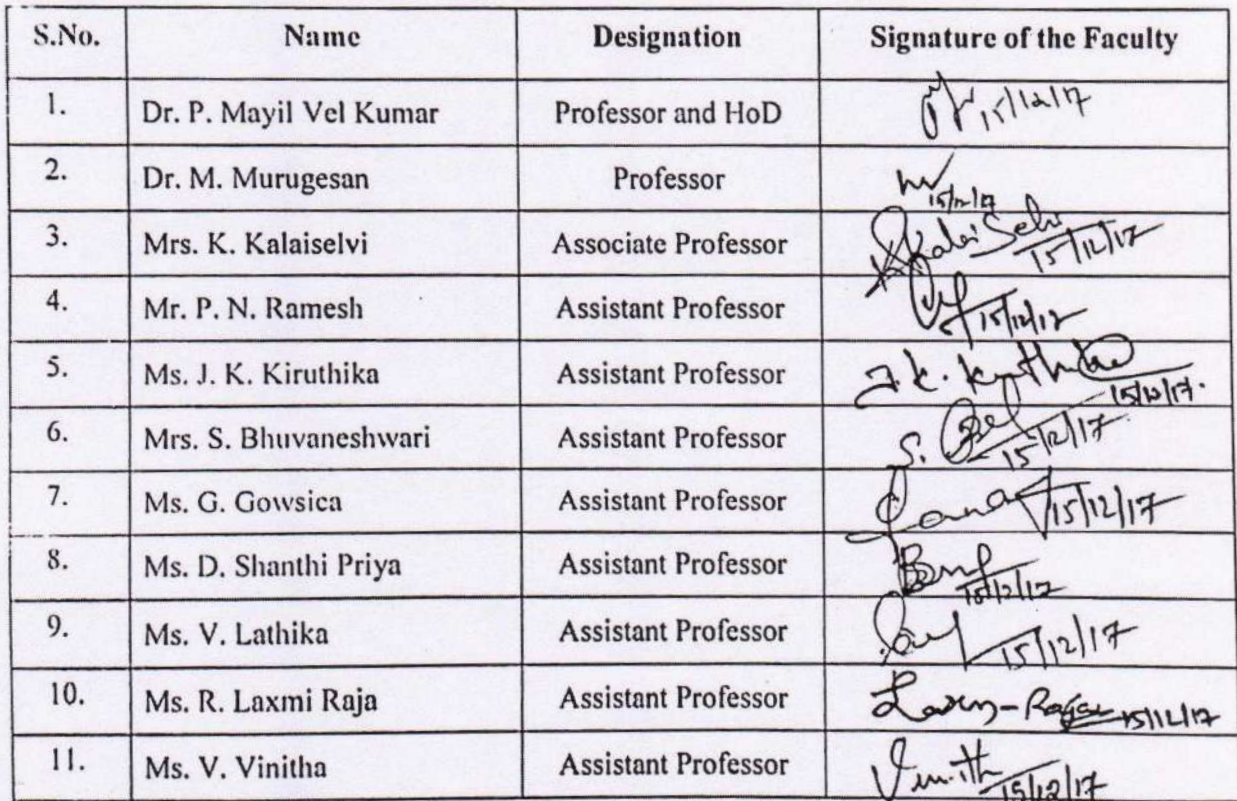 S.No. Name Designation Signature of the Faculty
1. Dr. P. Mayil Vel Kumar Professor and HoD 15/12/17
2. Dr. M. Murugesan Professor 15/12/17
3. Mrs. K. Kalaiselvi Associate Professor KalaiSelvi 15/12/17
4. Mr. P. N. Ramesh Assistant Professor 15/12/17
5. Ms. J. K. Kiruthika Assistant Professor J.K. 15/12/17.
6. Mrs. S. Bhuvaneshwari Assistant Professor S. 15/12/17
7. Ms. G. Gowsica Assistant Professor 15/12/17
8. Ms. D. Shanthi Priya Assistant Professor 15/12/17
9. Ms. V. Lathika Assistant Professor 15/12/17
10. Ms. R. Laxmi Raja Assistant Professor 15/12/17
11. Ms. V. Vinitha Assistant Professor 15/12/17